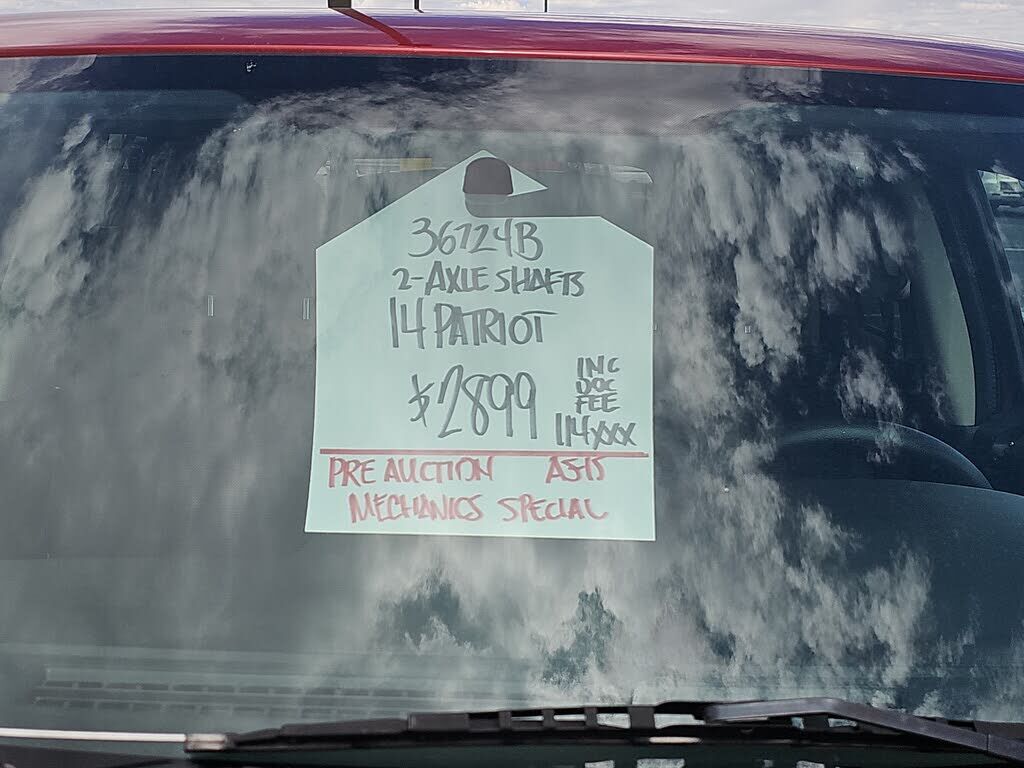 36724B
2-AXLE SHAFTS
14 PATRIOT
$2899
INC
DOC
FEE
114xxx
PRE AUCTION AS-IS
MECHANICS SPECIAL